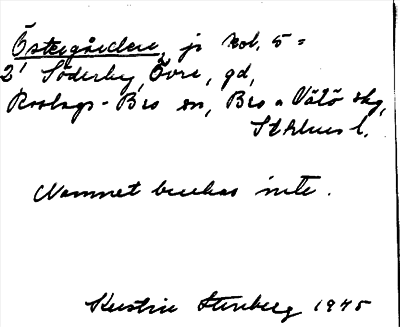 Östergården, js kol. 5 =
2' Söderby, Övre, gd,
Roslags-Bro sn, Bro o Vätö skg,
Sthlms l.
Namnet brukas inte.
Kerstin Stenberg 1945